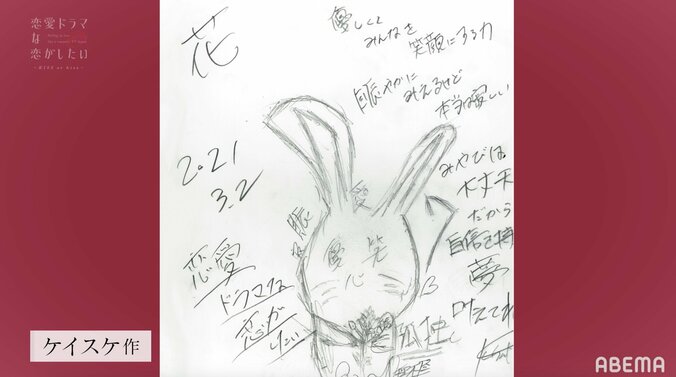 恋愛ドラマ
な
恋がしたい
花
優しくて
みんなを
笑顔にする力
賑やかに
みえるけど
本当は寂しい
2021
3.2
みやびは
大丈夫
だから
自信を持
夢
叶えてね
愛
賑
優 笑
心
恋愛
ドラマな
恋が
したい
孤独
ケイスケ作
ABEMA